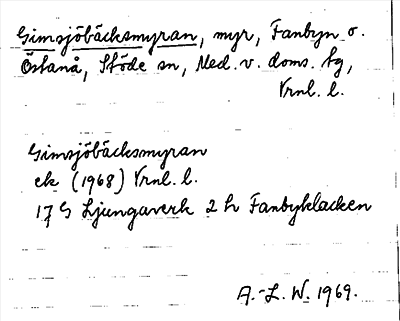 Gimsjöbäcksmyran, myr, Fanbyn o.
Östanå, Stöde sn, Med. v. doms. tg,
Vrnl. l.
Gimsjöbäcksmyran
ek (1968) Vrnl. l.
17 G Ljungaverk 2 h Fanbyklacken
A.-L. W. 1969.